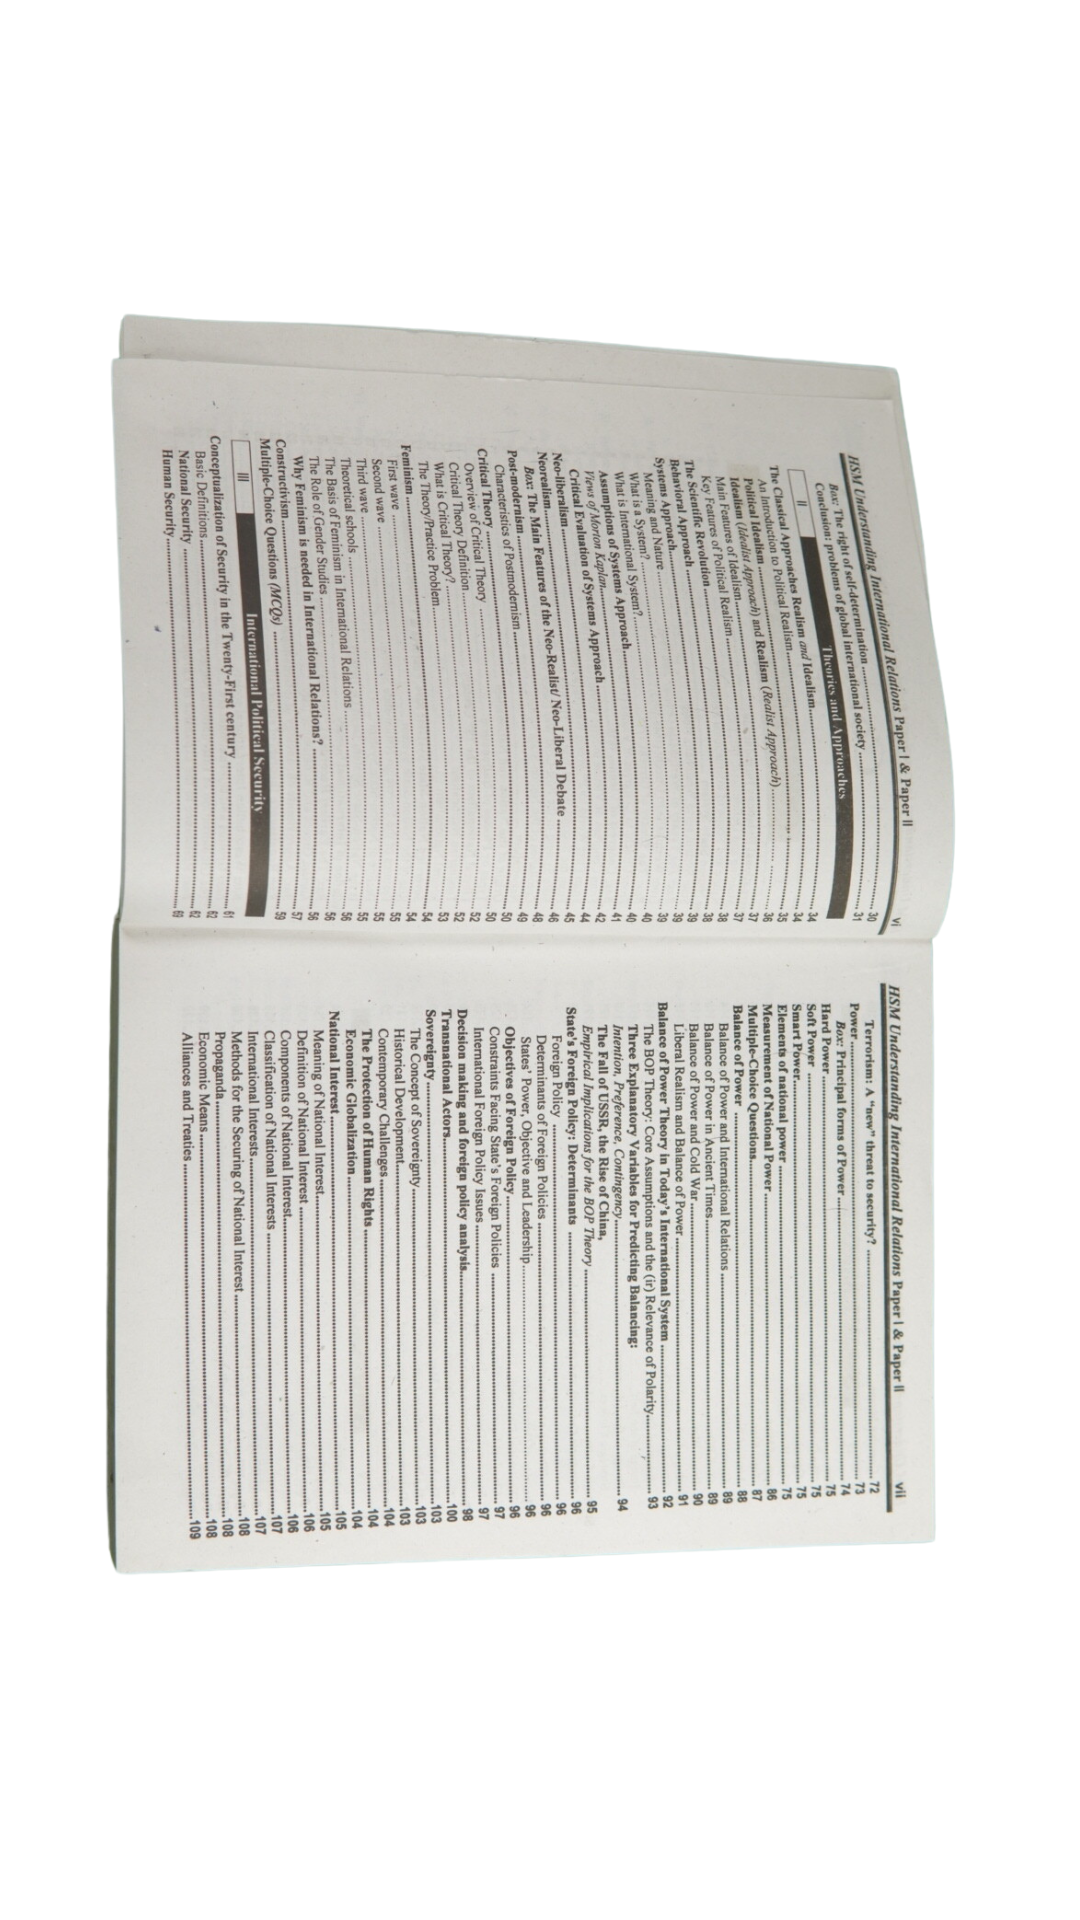 HSM Understanding International Relations Paper I & Paper II vi
Box: The right of self-determination 30
Conclusion: problems of global international society 31
II Theories and Approaches
The Classical Approaches Realism and Idealism 34
An Introduction to Political Realism 34
Political Idealism 35
Idealism (Idealist Approach) and Realism (Realist Approach) 36
Main Features of Idealism 37
Key Features of Political Realism 37
The Scientific Revolution 38
Behavioral Approach 38
Systems Approach 39
Meaning and Nature 39
What is a System? 39
What is International System? 40
Assumptions of Systems Approach 40
Views of Morton Kaplan 41
Critical Evaluation of Systems Approach 42
Neo-liberalism 44
Neorealism 45
Box: The Main Features of the Neo-Realist/ Neo-Liberal Debate 46
Post-modernism 48
Characteristics of Postmodernism 49
Critical Theory 50
Overview of Critical Theory 50
Critical Theory Definition 52
What is Critical Theory? 52
The Theory/Practice Problem 53
Feminism 54
First wave 54
Second wave 55
Third wave 55
Theoretical schools 55
The Basis of Feminism in International Relations 56
The Role of Gender Studies 56
Why Feminism is needed in International Relations? 56
Constructivism 57
Multiple-Choice Questions (MCQs) 59
III International Political Security
Conceptualization of Security in the Twenty-First century 61
Basic Definitions 62
National Security 62
Human Security 69
HSM Understanding International Relations Paper I & Paper II vii
Terrorism: A "new" threat to security? 72
Power 73
Box: Principal forms of Power 74
Hard Power 75
Soft Power 75
Smart Power 75
Elements of national power 75
Measurement of National Power 86
Multiple-Choice Questions 87
Balance of Power 88
Balance of Power and International Relations 89
Balance of Power in Ancient Times 89
Balance of Power and Cold War 90
Liberal Realism and Balance of Power 91
Balance of Power Theory in Today's International System 92
The BOP Theory: Core Assumptions and the (ir) Relevance of Polarity 93
Three Explanatory Variables for Predicting Balancing:
Intention, Preference, Contingency 94
The Fall of USSR, the Rise of China,
Empirical Implications for the BOP Theory 95
State's Foreign Policy: Determinants 96
Foreign Policy 96
Determinants of Foreign Policies 96
States' Power, Objective and Leadership 96
Objectives of Foreign Policy 96
Constraints Facing State's Foreign Policies 97
International Foreign Policy Issues 97
Decision making and foreign policy analysis 98
Transnational Actors 100
Sovereignty 103
The Concept of Sovereignty 103
Historical Development 103
Contemporary Challenges 104
The Protection of Human Rights 104
Economic Globalization 104
National Interest 105
Meaning of National Interest 105
Definition of National Interest 106
Components of National Interest 106
Classification of National Interests 107
International Interests 107
Methods for the Securing of National Interest 108
Propaganda 108
Economic Means 108
Alliances and Treaties 109